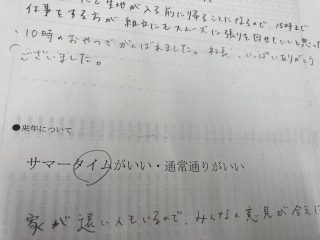 と生地が入る前に帰ることになるので、15時まで
仕事をする方が組立にもスムーズに張りを出せていいと思った
10時のおやつでがんばれました。社長、いっぱいありがとう
ございました。
●来年について
サマータイムがいい・通常通りがいい
家が遠い人もいるので、みんなの意見が合えば